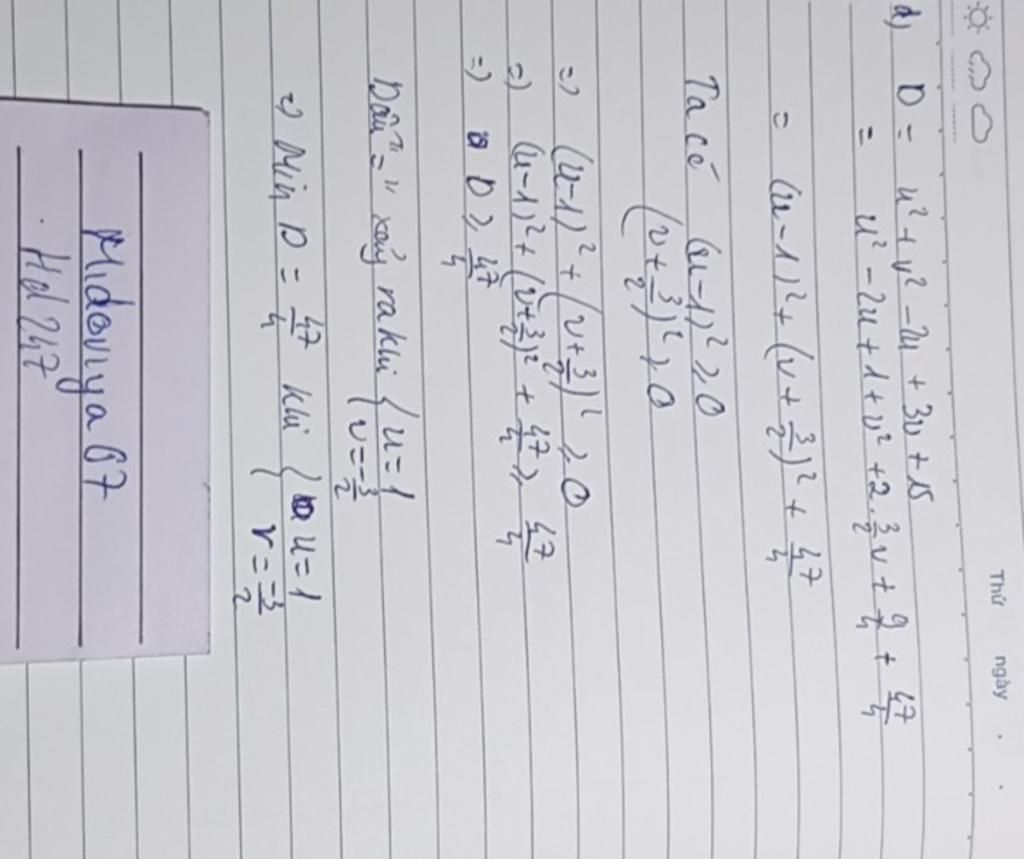 Thứ ngày . .
d) D = u² + v² - 2u + 3v + 15
= u² - 2u + 1 + v² + 2.3/2v + 9/4 + 47/4
= (u-1)² + (v + 3/2)² + 47/4
Ta có (u-1)² ≥ 0
(v + 3/2)² ≥ 0
=> (u-1)² + (v + 3/2)² ≥ 0
=> (u-1)² + (v + 3/2)² + 47/4 ≥ 47/4
=> D ≥ 47/4
Dấu "=" xảy ra khi { u = 1
v = -3/2
=> Min D = 47/4 khi { u = 1
v = -3/2
Midoriya 67
Hd 247